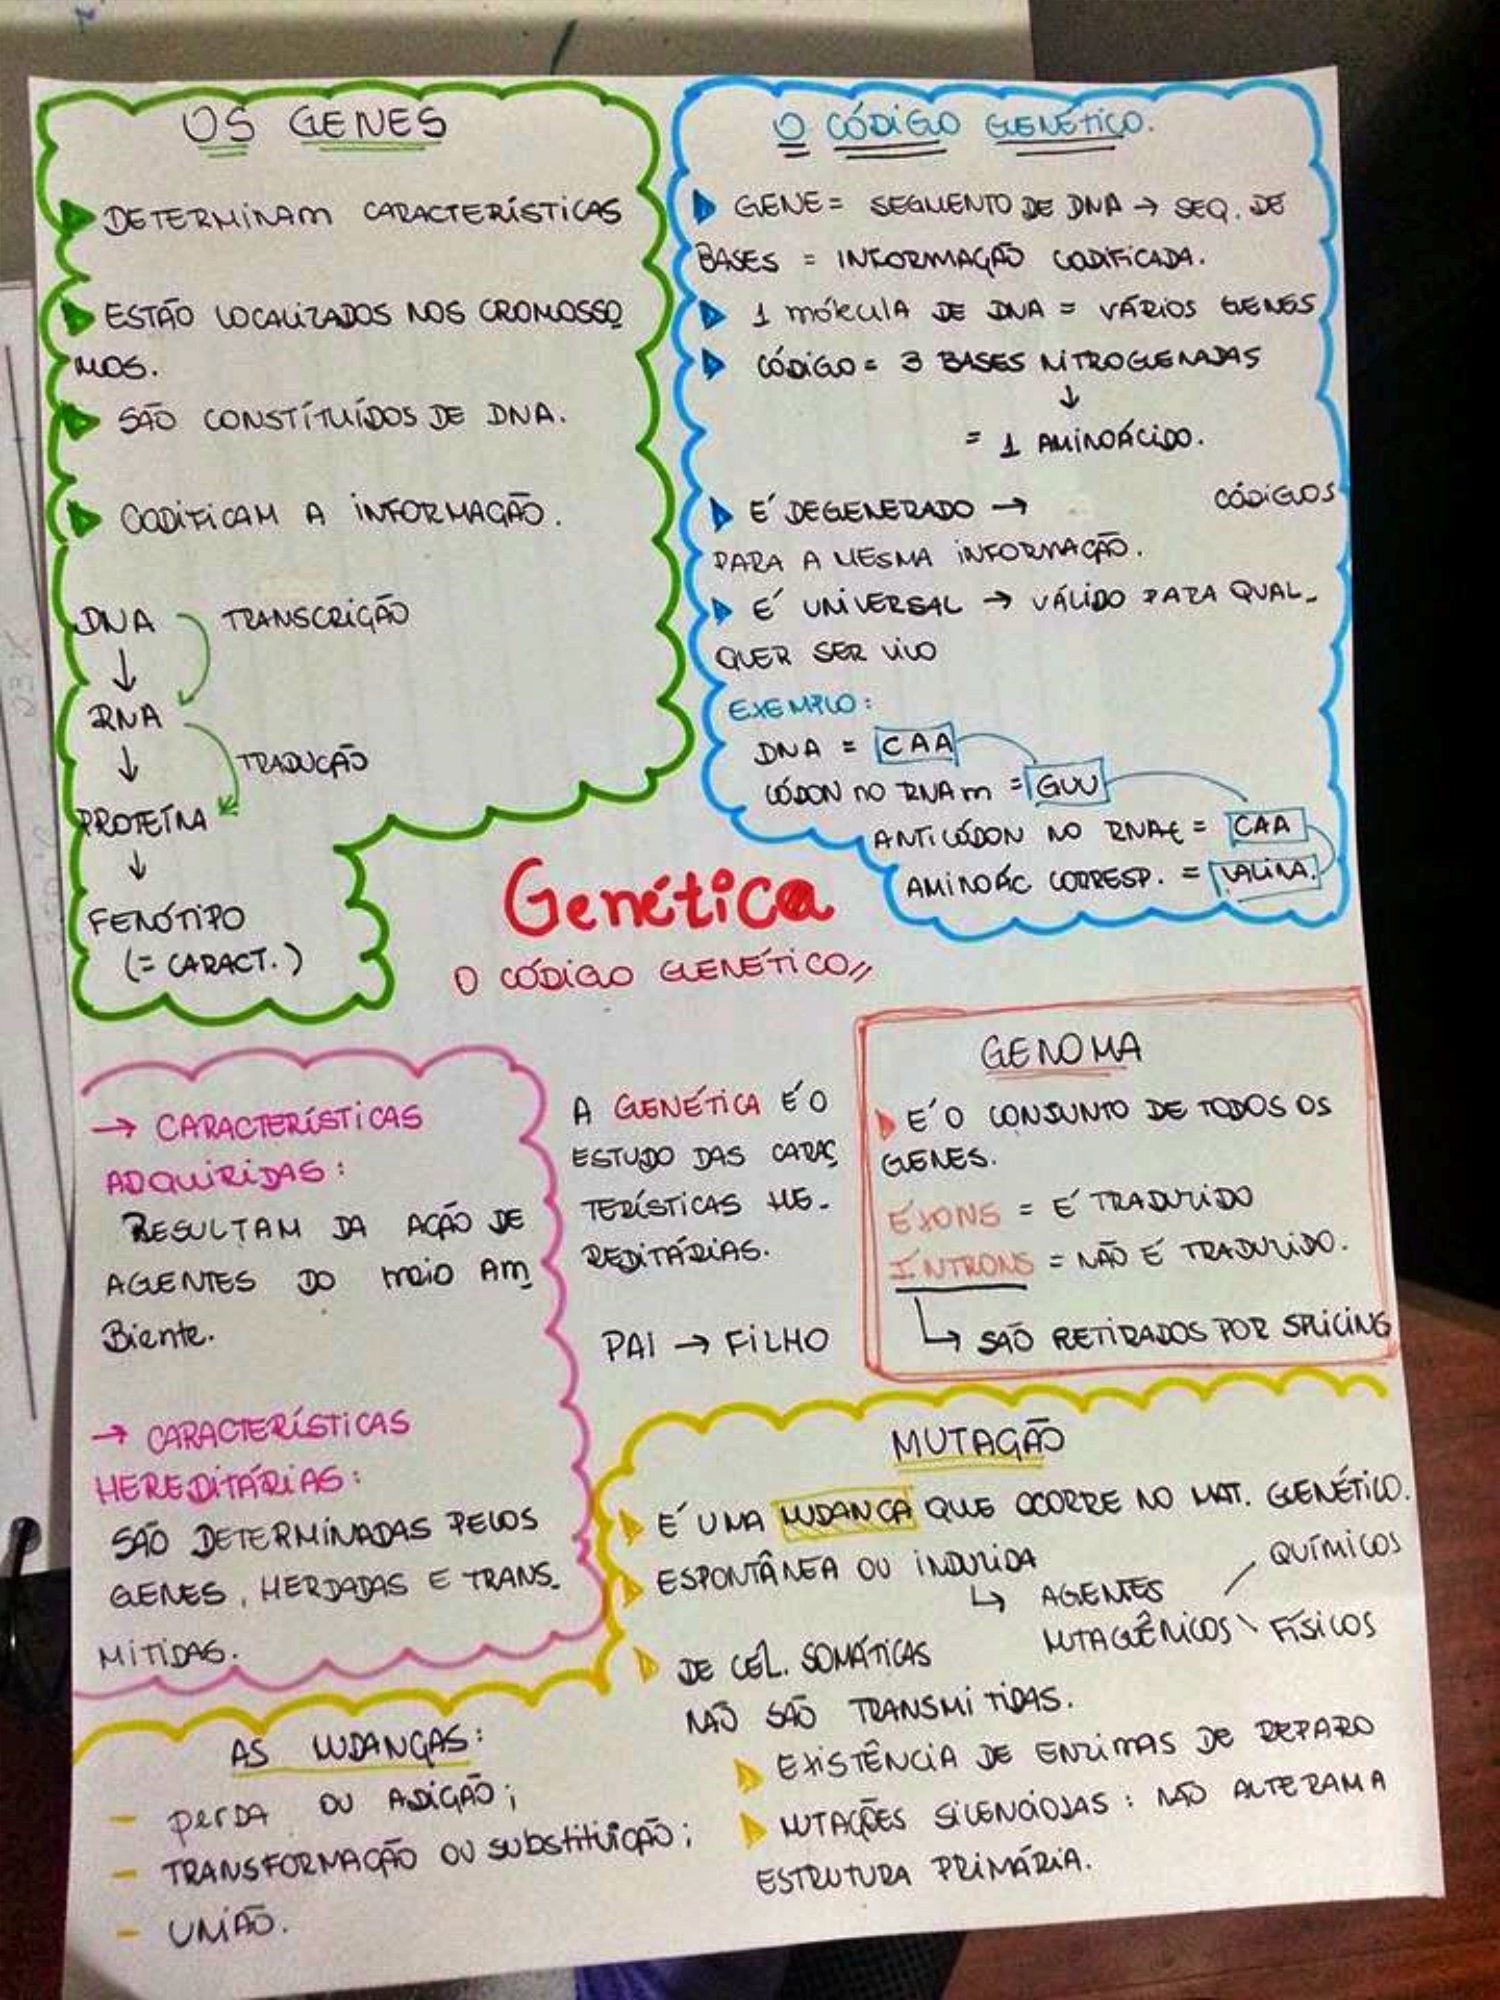 OS GENES
DETERMINAM CARACTERÍSTICAS
ESTÃO LOCALIZADOS NOS CROMOSSO
MOS.
SÃO CONSTÍTUÍDOS DE DNA.
CODIFICAM A INFORMAÇÃO.
DNA TRANSCRIÇÃO
↓
RNA
↓ TRADUCÃO
PROTEÍNA
↓
FENÓTIPO
(= CARACT.)
O CÓDIGO GENÉTICO.
GENE = SEGMENTO DE DNA → SEQ. DE
BASES = INFORMAÇÃO CODIFICADA.
1 mólécula DE DNA = VÁRIOS GENES
CÓDIGO = 3 BASES NITROGENADAS
↓
= 1 AMINOÁCIDO.
É DEGENERADO → CÓDIGOS
PARA A MESMA INFORMAÇÃO.
É UNIVERSAL → VÁLIDO PARA QUAL-
QUER SER VIVO
EXEMPLO:
DNA = CAA
CÓDON NO RNAm = GUU
ANTICÓDON NO RNAt = CAA
AMINOÁC CORRESP. = VALINA.
Genética
O CÓDIGO GENÉTICO//
→ CARACTERÍSTICAS
ADQUIRIDAS:
RESULTAM DA AÇÃO DE
AGENTES DO meio AM
Biente.
→ CARACTERÍSTICAS
HEREDITÁRIAS:
SÃO DETERMÍNADAS PELOS
GENES, HERDADAS E TRANS-
MITIDAS.
A GENÉTICA É O
ESTUDO DAS CARAC
TERÍSTICAS HE-
REDITÁRIAS.
PAI → FILHO
GENOMA
É O CONJUNTO DE TODOS OS
GENES.
ÉXONS = É TRADUZIDO
ÍNTRONS = NÃO É TRADUZIDO.
↳ SÃO RETIRADOS POR SPLICING
MUTAÇÃO
É UMA MUDANÇA QUE OCORRE NO MAT. GENÉTICO.
ESPONTÂNEA OU INDUZIDA
↳ AGENTES QUÍMICOS
MUTAGÊNICOS FÍSICOS
DE CÉL. SOMÁTICAS
NÃO SÃO TRANSMITIDAS.
EXISTÊNCIA DE ENZIMAS DE REPARO
MUTAÇÕES SILENCIOSAS: NÃO ALTERAM A
ESTRUTURA PRIMÁRIA.
AS MUDANÇAS:
- perda OU ADIÇÃO;
- TRANSFORMAÇÃO OU substituição;
- UNIÃO.